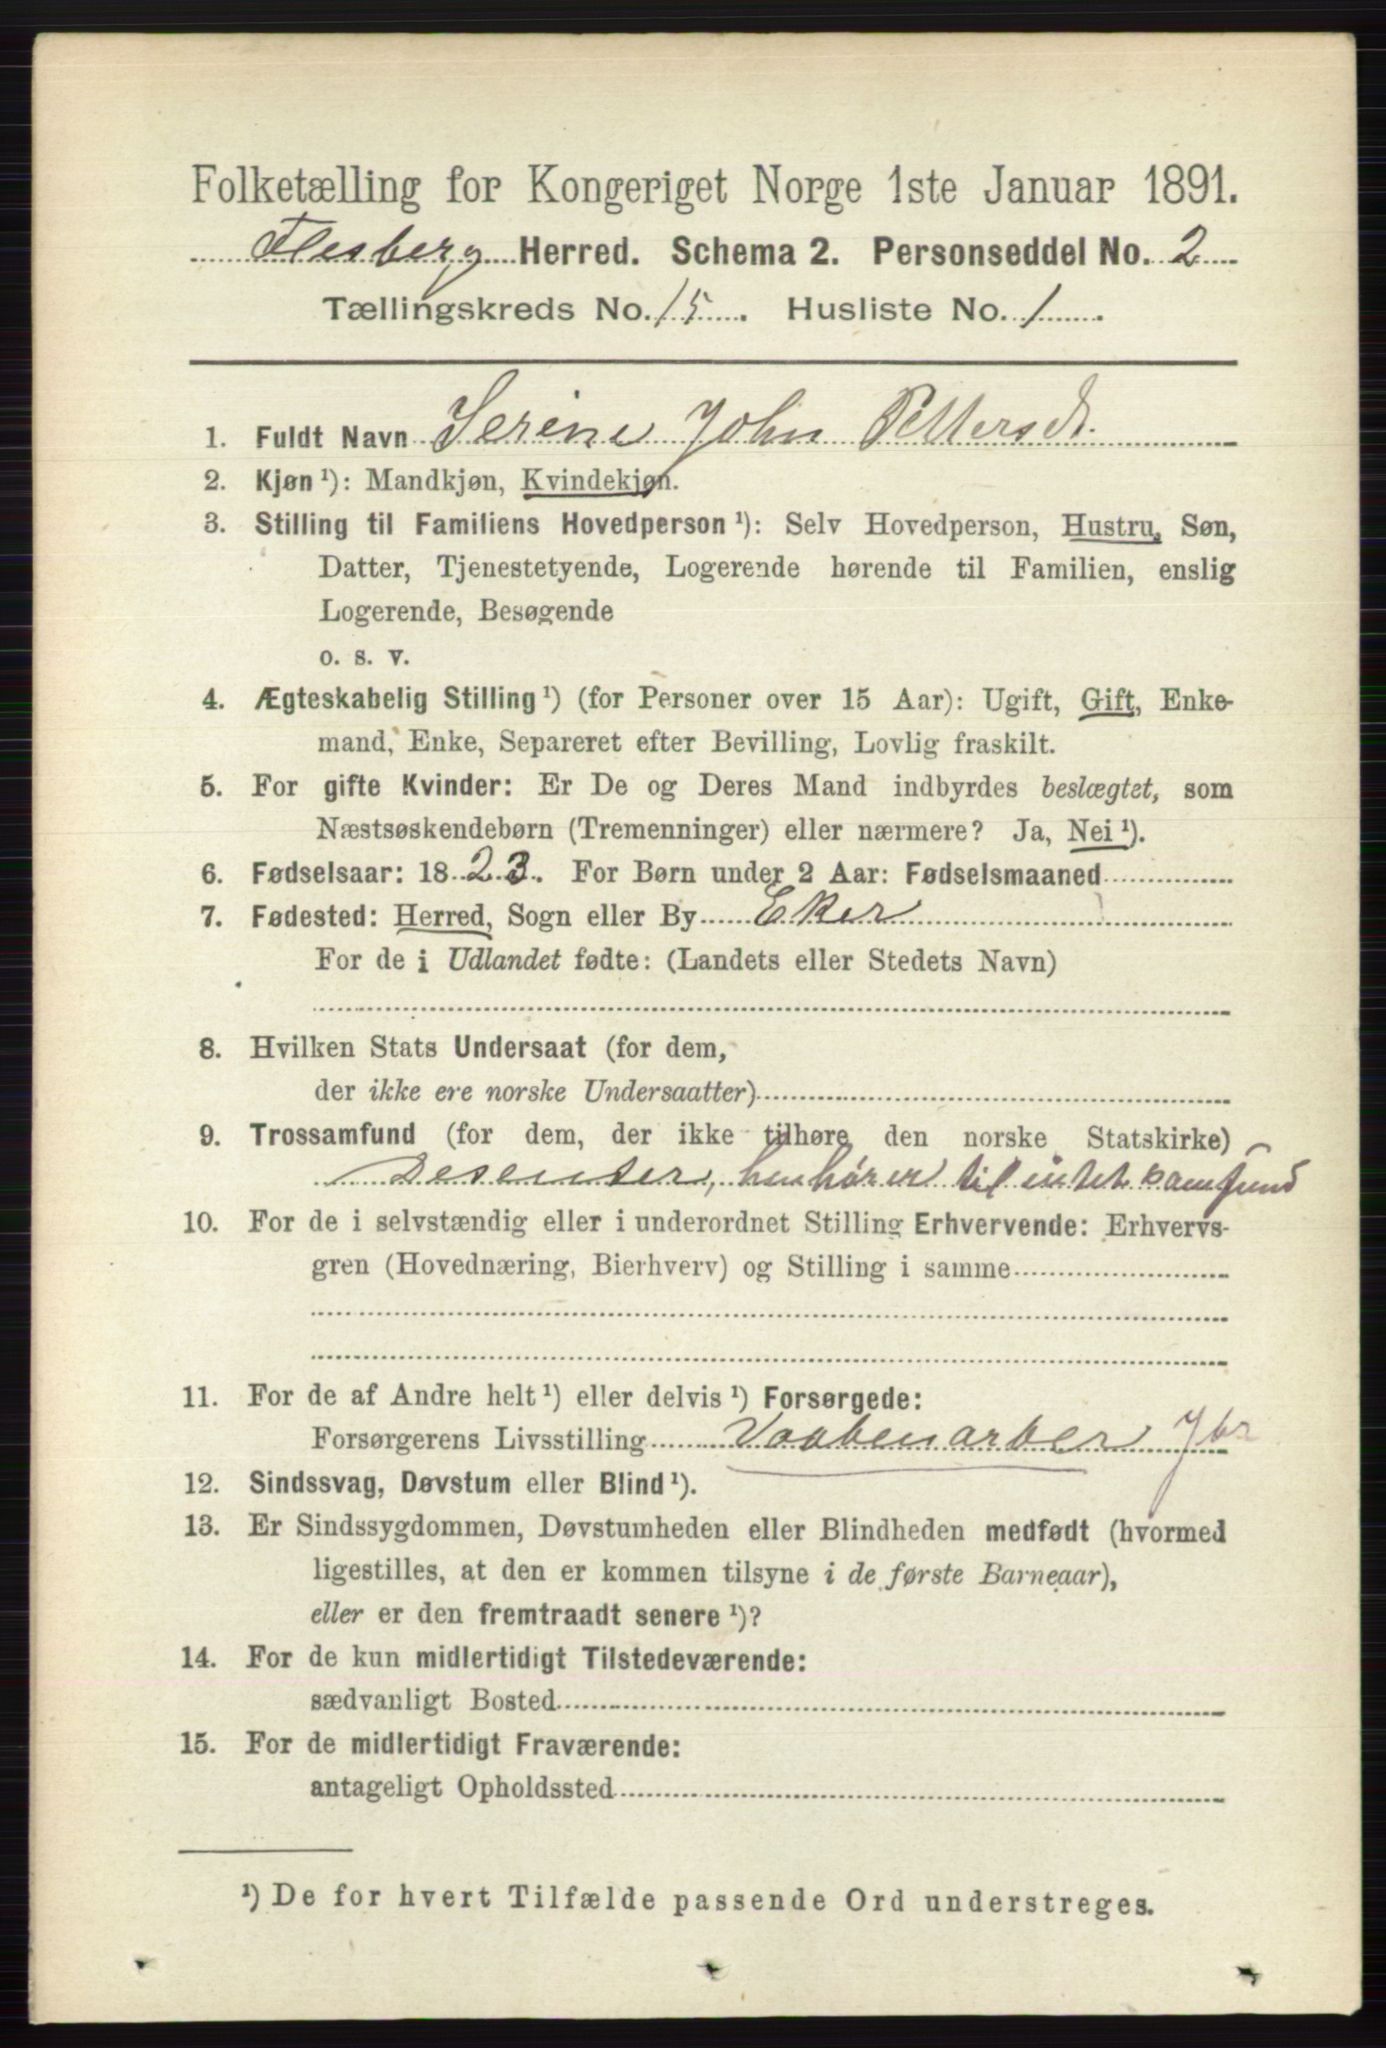 Folketælling for Kongeriget Norge 1ste Januar 1891.
Flesberg Herred. Schema 2. Personseddel No. 2
Tællingskreds No. 15. Husliste No. 1.
1. Fuldt Navn Serine John Pettersdt.
2. Kjøn ¹): Mandkjøn, Kvindekjøn.
3. Stilling til Familiens Hovedperson ¹): Selv Hovedperson, Hustru, Søn,
Datter, Tjenestetyende, Logerende hørende til Familien, enslig
Logerende, Besøgende
o. s. v.
4. Ægteskabelig Stilling ¹) (for Personer over 15 Aar): Ugift, Gift, Enke-
mand, Enke, Separeret efter Bevilling, Lovlig fraskilt.
5. For gifte Kvinder: Er De og Deres Mand indbyrdes beslægtet, som
Næstsøskendebørn (Tremenninger) eller nærmere? Ja, Nei ¹).
6. Fødselsaar: 1823. For Børn under 2 Aar: Fødselsmaaned
7. Fødested: Herred, Sogn eller By Eker
For de i Udlandet fødte: (Landets eller Stedets Navn)
8. Hvilken Stats Undersaat (for dem,
der ikke ere norske Undersaatter)
9. Trossamfund (for dem, der ikke tilhøre den norske Statskirke)
Desenter, henhører til intet samfund
10. For de i selvstændig eller i underordnet Stilling Erhvervende: Erhvervs-
gren (Hovednæring, Bierhverv) og Stilling i samme
11. For de af Andre helt ¹) eller delvis ¹) Forsørgede:
Forsørgerens Livsstilling Vaabenarber
12. Sindssvag, Døvstum eller Blind ¹).
13. Er Sindssygdommen, Døvstumheden eller Blindheden medfødt (hvormed
ligestilles, at den er kommen tilsyne i de første Barneaar),
eller er den fremtraadt senere ¹)?
14. For de kun midlertidigt Tilstedeværende:
sædvanligt Bosted
15. For de midlertidigt Fraværende:
antageligt Opholdssted
¹) De for hvert Tilfælde passende Ord understreges.